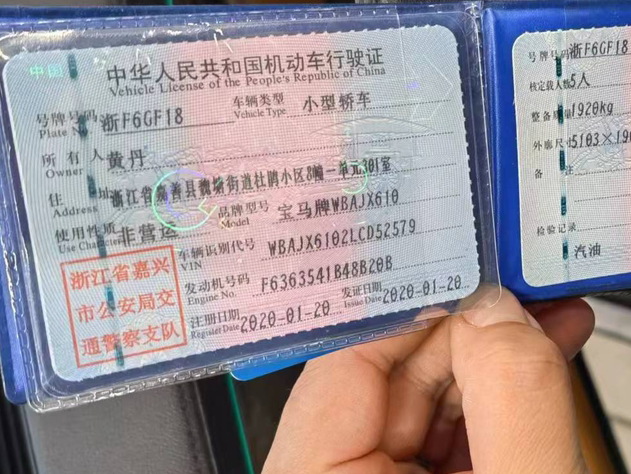 中国
中华人民共和国机动车行驶证
Vehicle License of the People's Republic of China
号牌号码 浙F6GF18 车辆类型 小型轿车
Plate No. Vehicle Type
所有人 黄丹
Owner
住址 浙江省嘉善县魏塘街道杜鹃小区8幢一单元301室
Address
使用性质 非营运 品牌型号 宝马牌WBAJX610
Use Character Model
车辆识别代号 WBAJX6102LCD52579
VIN
发动机号码 F6363541B48B20B
Engine No.
注册日期 2020-01-20 发证日期 2020-01-20
Register Date Issue Date
浙江省嘉兴
市公安局交
通警察支队
号牌号码 浙F6GF18
核定载人数 5人
整备质量 1920kg
外廓尺寸 5103×190
备注
检验记录
汽油